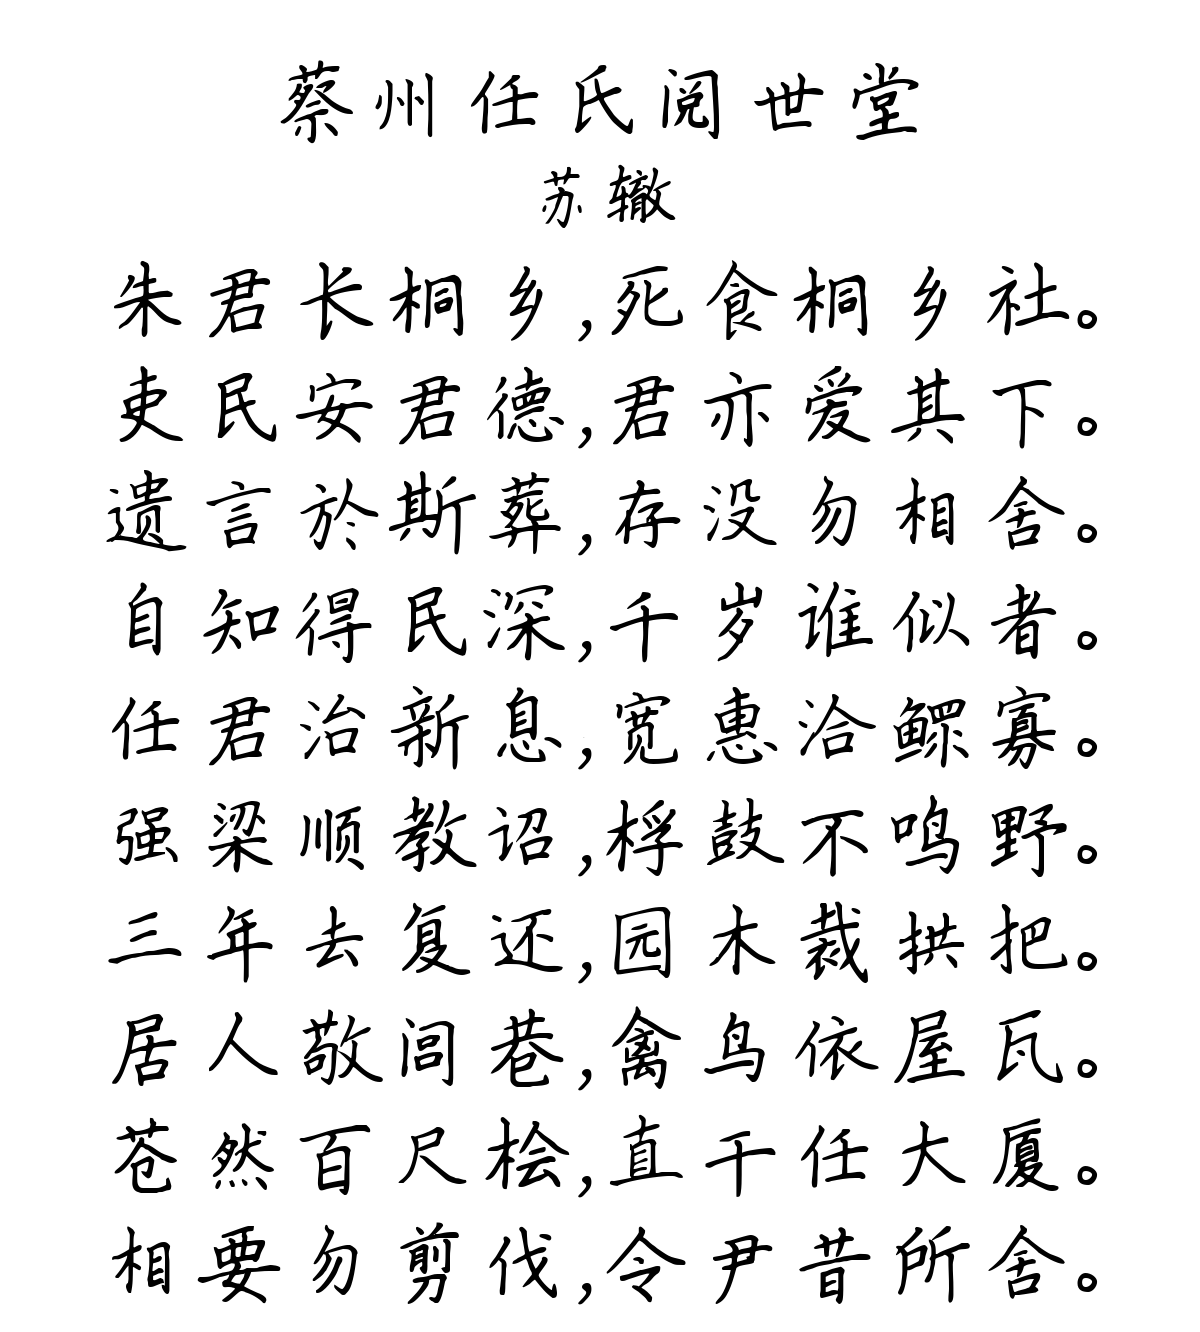 蔡州任氏阅世堂
苏辙
朱君长桐乡,死食桐乡社。
吏民安君德,君亦爱其下。
遗言於斯葬,存没勿相舍。
自知得民深,千岁谁似者。
任君治新息,宽惠洽鳏寡。
强梁顺教诏,桴鼓不鸣野。
三年去复还,园木裁拱把。
居人敬闾巷,禽鸟依屋瓦。
苍然百尺桧,直干任大厦。
相要勿剪伐,令尹昔所舍。